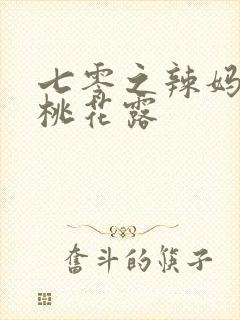 七零之辣妈
桃花露
奋斗的筷子